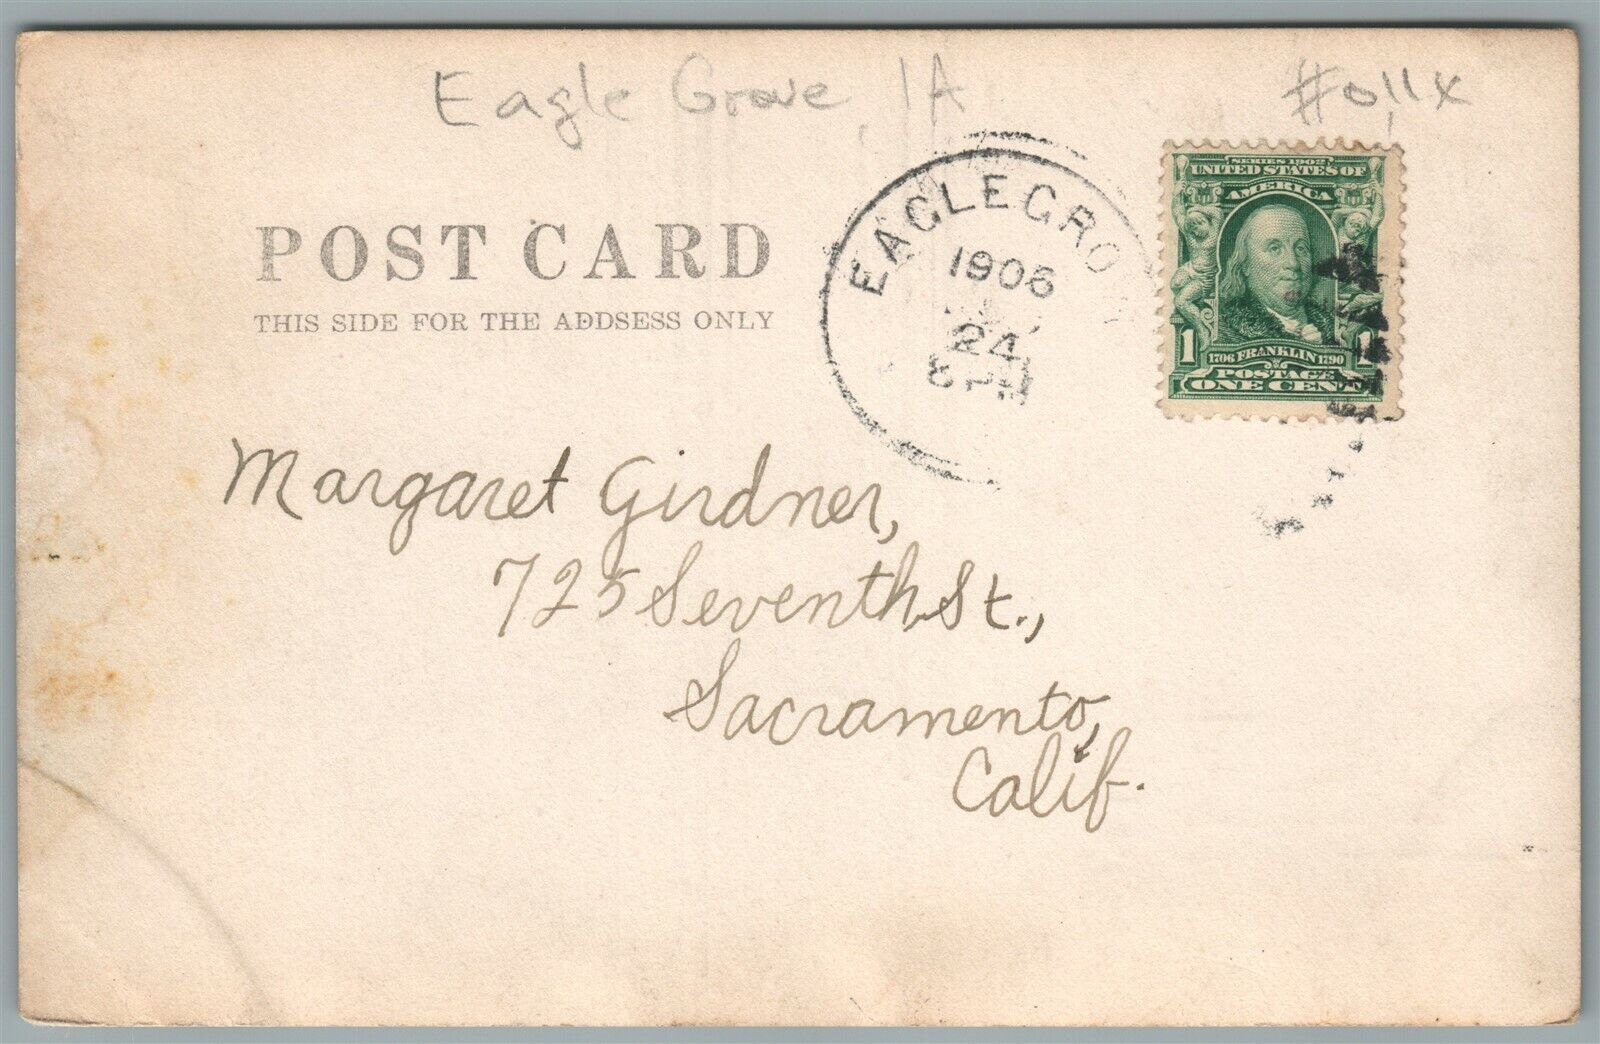 Eagle Grove, IA
#011x
POST CARD
THIS SIDE FOR THE ADDSESS ONLY
EAGLE GRO
1906
24
8 PM
SERIES 1902
UNITED STATES OF
AMERICA
1 1
1706 FRANKLIN 1790
POSTAGE
ONE CENT
Margaret Girdner,
725 Seventh St.,
Sacramento,
Calif.